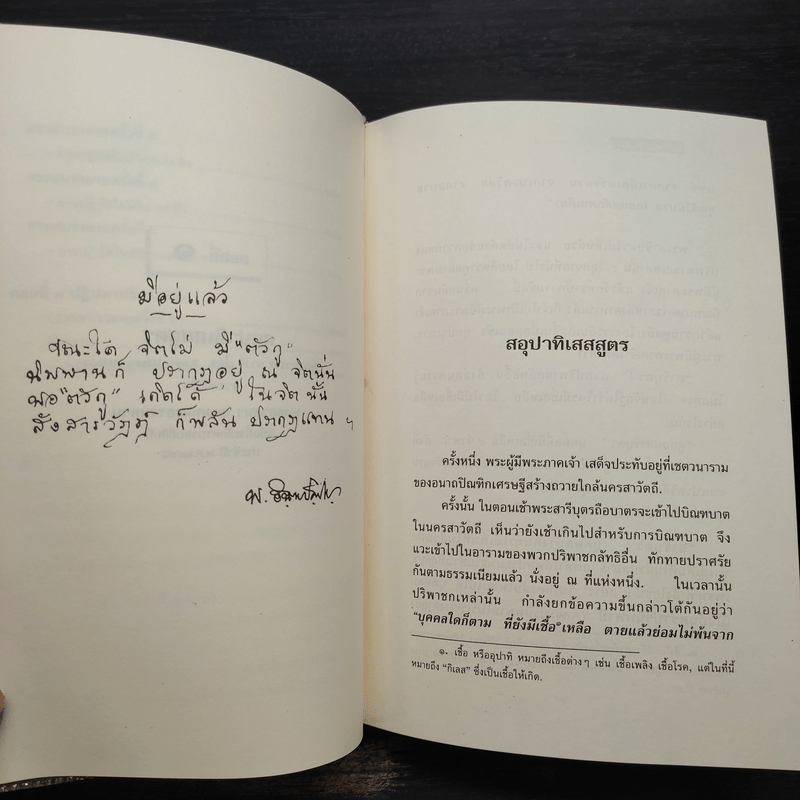 มีอยู่แล้ว
ขณะใด จิตไม่ มี "ตัวกู"
นิพพานก็ ปรากฏอยู่ ณ จิตนั้น
พอ "ตัวกู" เกิดได้ ในจิตนั้น
สังสารวัฏฏ์ ก็พลัน ปรากฏแทน ฯ
พ. อินทปัญโญ
สอุปาทิเสสสูตร
ครั้งหนึ่ง พระผู้มีพระภาคเจ้า เสด็จประทับอยู่ที่เชตวนาราม
ของอนาถปิณฑิกเศรษฐีสร้างถวายใกล้นครสาวัตถี.
ครั้งนั้น ในตอนเช้าพระสารีบุตรถือบาตรจะเข้าไปบิณฑบาต
ในนครสาวัตถี เห็นว่ายังเช้าเกินไปสำหรับการบิณฑบาต จึง
แวะเข้าไปในอารามของพวกปริพาชกลัทธิอื่น ทักทายปราศรัย
กันตามธรรมเนียมแล้ว นั่งอยู่ ณ ที่แห่งหนึ่ง. ในเวลานั้น
ปริพาชกเหล่านั้น กำลังยกข้อความขึ้นกล่าวโต้กันอยู่ว่า
"บุคคลใดก็ตาม ที่ยังมีเชื้อ๑เหลือ ตายแล้วย่อมไม่พ้นจาก
๑. เชื้อ หรืออุปาทิ หมายถึงเชื้อต่างๆ เช่น เชื้อเพลิง เชื้อโรค, แต่ในที่นี้
หมายถึง "กิเลส" ซึ่งเป็นเชื้อให้เกิด.